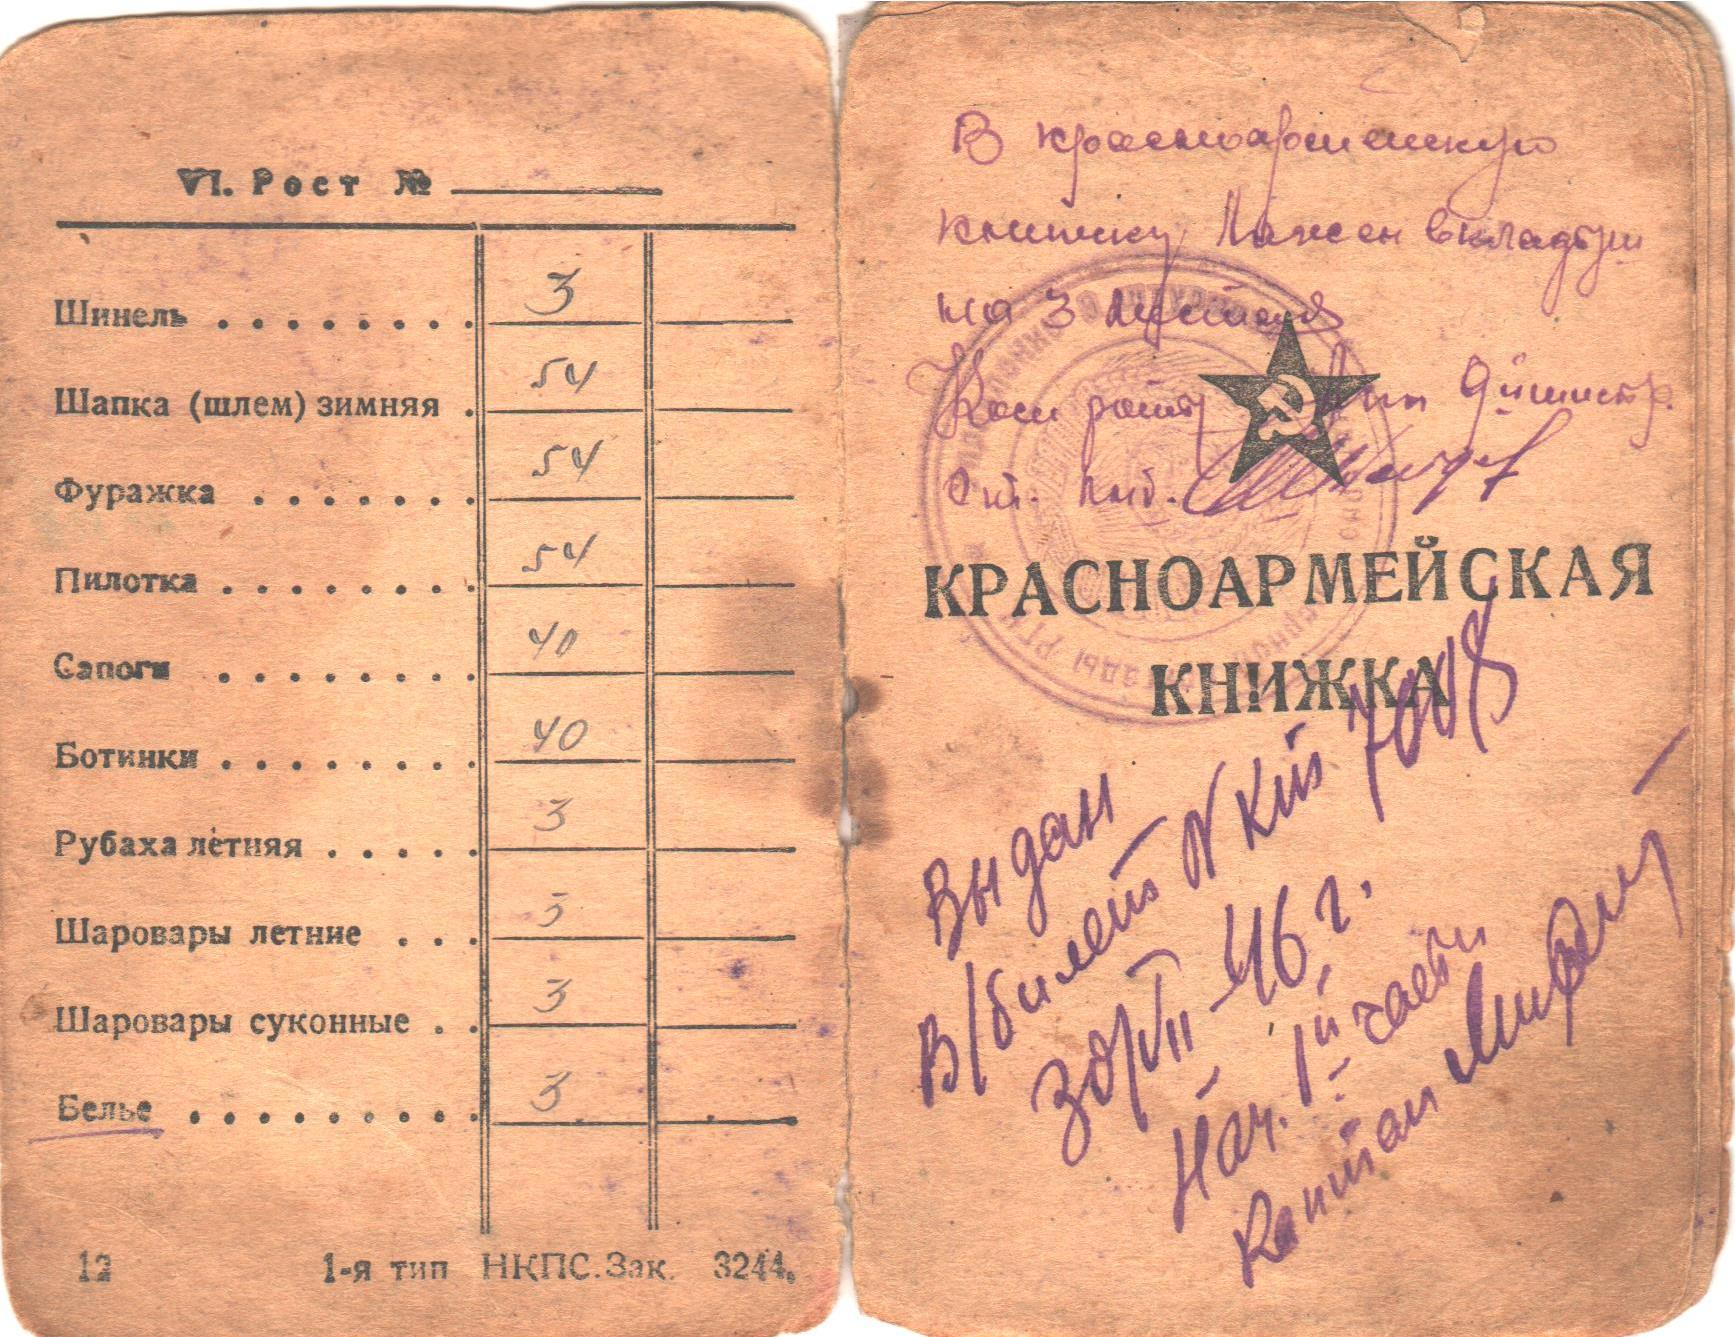 VI. Рост №
Шинель 3
Шапка (шлем) зимняя 54
Фуражка 54
Пилотка 54
Сапоги 40
Ботинки 40
Рубаха летняя 3
Шаровары летние 3
Шаровары суконные 3
Белье 3
12 1-я тип НКПС. Зак. 3244.
В красноармейскую
книжку вкладыш
на 3
Ком роты
КРАСНОАРМЕЙСКАЯ
КНИЖКА
Выдан
В/билет N
46 г.
Нач. 1й части
Капитан